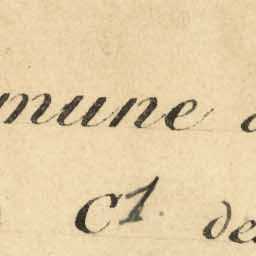 mune
C1. de